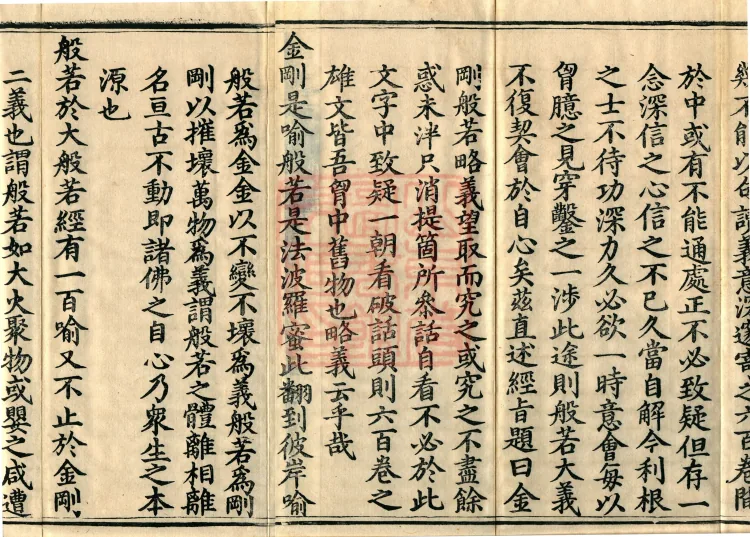 於中或有不能通處正不必致疑但存一
念深信之心信之不已久當自解今利根
之士不待功深力久必欲一時意會每以
胷臆之見穿鑿之一涉此途則般若大義
不復契會於自心矣茲直述經旨題曰金
剛般若略義望取而究之或究之不盡餘
惑未泮只消提箇所叅話自看不必於此
文字中致疑一朝看破話頭則六百卷之
雄文皆吾胷中舊物也略義云乎哉
金剛是喻般若是法波羅蜜此翻到彼岸喻
般若爲金金以不變不壞爲義般若爲剛
剛以摧壞萬物爲義謂般若之體離相離
名亘古不動即諸佛之自心乃衆生之本
源也
般若於大般若經有一百喻又不止於金剛
二義也謂般若如大火聚物或嬰之咸遭